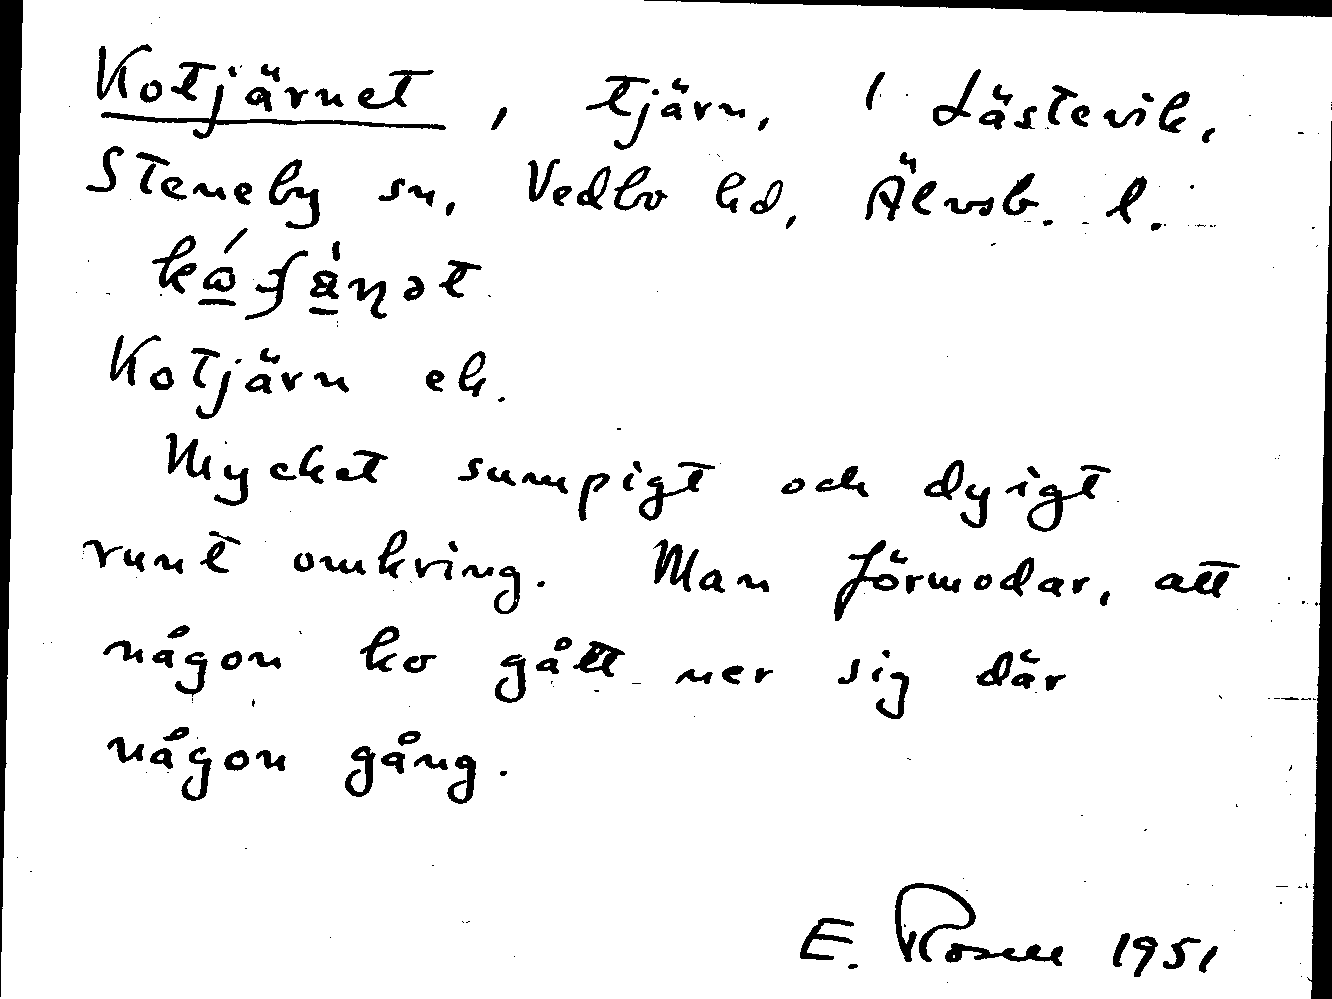 Kotjärnet, tjärn, 1 Lästevik,
Steneby sn, Vedbo hd, Älvsb. l.
Kotjärn ek.
Mycket sumpigt och dyigt
runt omkring. Man förmodar, att
någon ko gått ner sig där
någon gång.
E. Rosell 1951